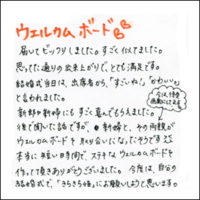 ウェルカムボード
届いてビックリしました。すごく似てました。
思ってた通りの出来上がりで、とても満足です。
結婚式当日は、出席者から、「すごいね!」「かわいい」
と言われました。
新郎や新婦にもすごく喜んでもらえました。
後で聞いた話ですが、新婦と、その両親が
ウェルカムボードを取り合いになったそうです
本当に短い時間で、ステキなウェルカムボードを
作って頂きありがとうございました。今度は、自分の
結婚式で、「きらきら」様にお願いしようと思います。